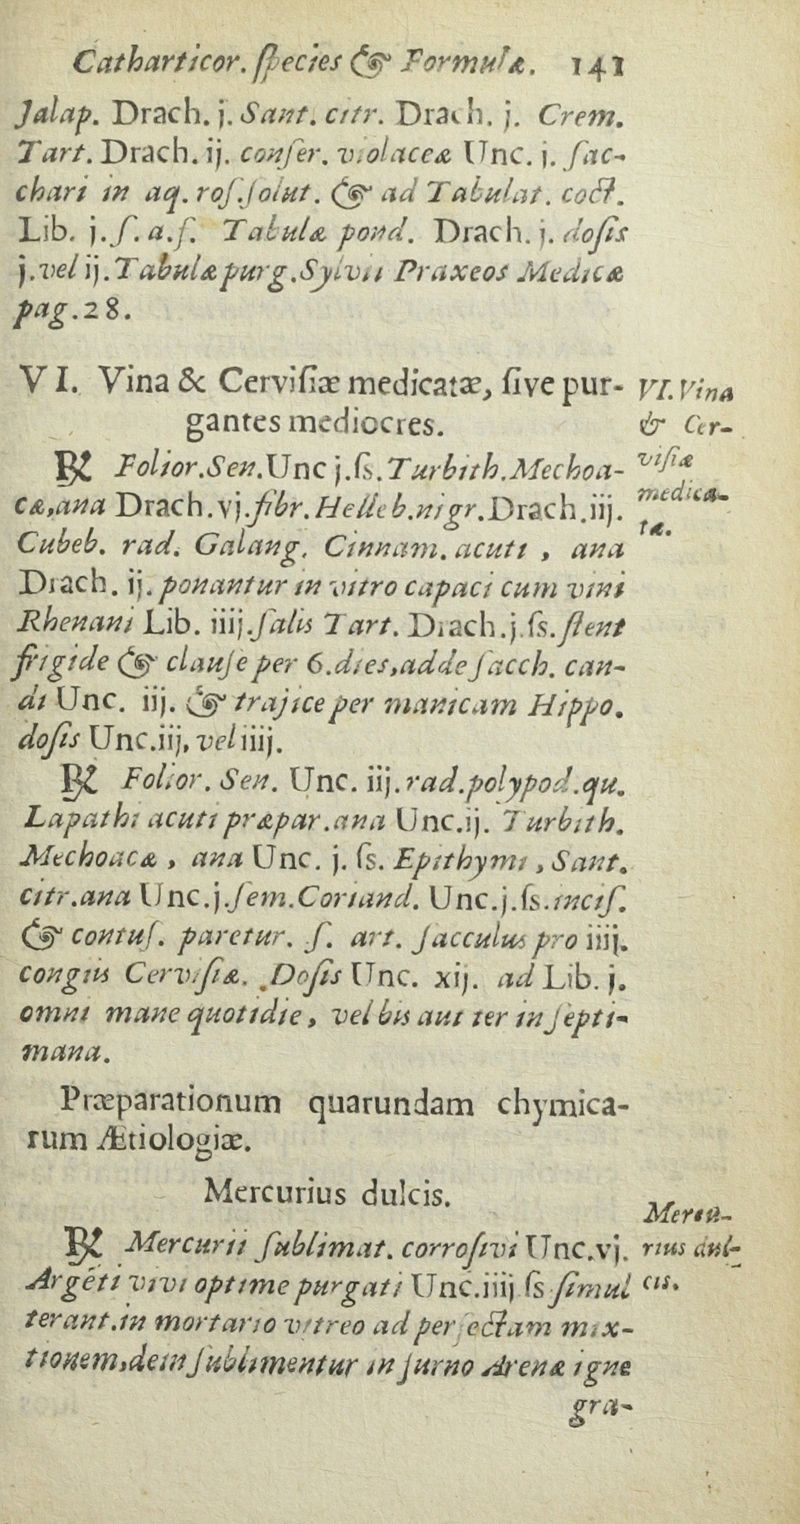 Catharticor. ſpecies & Formulæ. 141
Jalap. Drach. j. Sant. citr. Drach. j. Crem.
Tart. Drach. ij. conſer. violaceæ Unc. j. ſac-
chari in aq. roſ. ſolut. & ad Tabulat. coct.
Lib. j. ſ. a. ſ. Tabulæ pond. Drach. j. doſis
j. vel ij. Tabulæ purg. Sylvii Praxeos Medicæ
pag. 28.
VI. Vina & Cerviſiæ medicatæ, ſive pur-
gantes mediocres.
VI. Vina
& Cer-
viſiæ
medica-
tæ.
℞ Folior. Sen. Unc j. ſs. Turbith. Mechoa-
cæ, ana Drach. vj. fibr. Helleb. nigr. Drach. iij.
Cubeb. rad. Galang. Cinnam. acuti, ana
Drach. ij. ponantur in vitro capaci cum vini
Rhenani Lib. iiij. ſalis Tart. Drach. j. ſs. ſtent
frigide & clauſe per 6. dies, adde ſacch. can-
di Unc. iij. & trajice per manicam Hippo.
doſis Unc. iij, vel iiij.
℞ Folior. Sen. Unc. iij. rad. polypod. qu.
Lapathi acuti præpar. ana Unc. ij. Turbith.
Mechoacæ, ana Unc. j. ſs. Epithymi, Sant.
citr. ana Unc. j. ſem. Coriand. Unc. j. ſs. inciſ.
& contuſ. paretur. ſ. art. ſacculus pro iiij.
congiis Cerviſiæ. Doſis Unc. xij. ad Lib. j.
omni mane quotidie, vel bis aut ter in ſepti-
mana.
Præparationum quarundam chymica-
rum Ætiologiæ.
Mercurius dulcis.
Mercu-
rius dul-
cis.
℞ Mercurii ſublimat. corroſivi Unc. vj.
Argēti vivi optime purgati Unc. iiij ſs ſimul
terant. in mortario vitreo ad perfectam mix-
tionem, dein ſublimentur in furno Arenæ igne
gra-